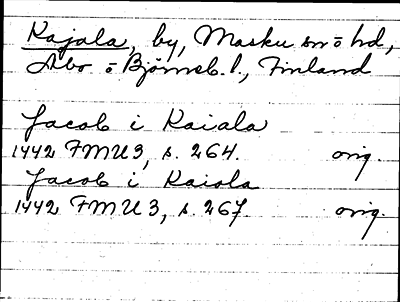 Kajala, by, Masku sn o hd,
Åbo o Björneb. l., Finland
Jacob i Kaiala
1442 FMU 3, s. 264. orig.
Jacob i Kaiola
1442 FMU 3, s. 267. orig.